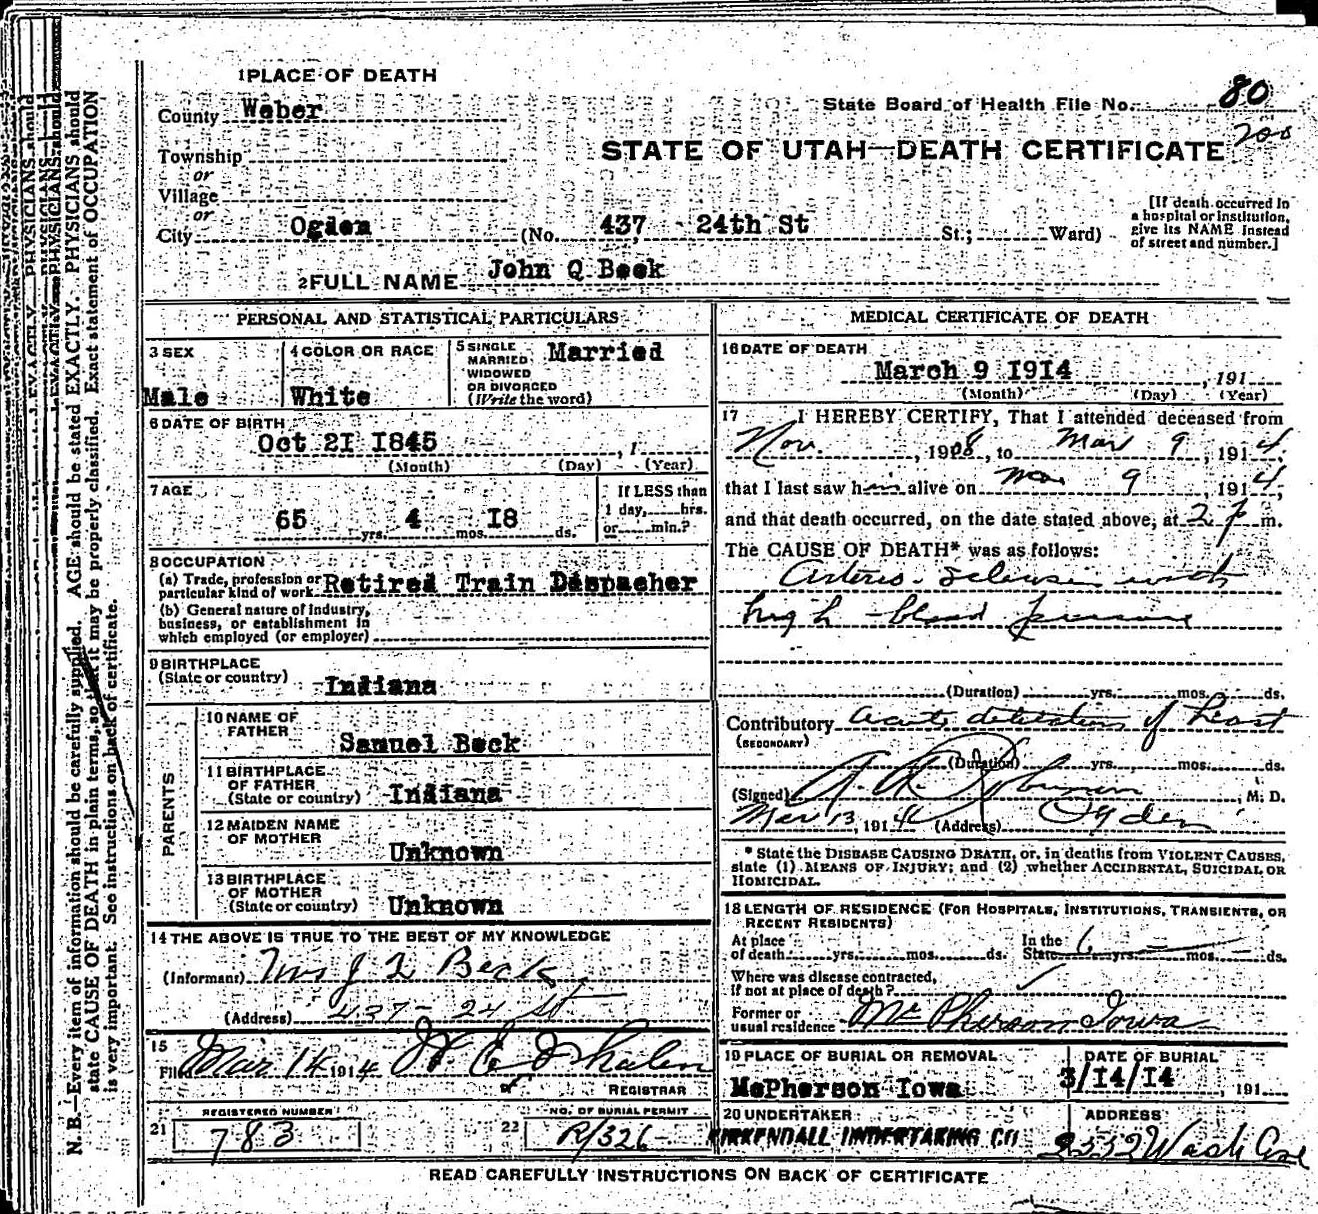 1 PLACE OF DEATH
County Weber
State Board of Health File No. 80
200
Township
or
STATE OF UTAH—DEATH CERTIFICATE
Village
or
City Ogden (No. 437, - 24th St St.; Ward)
[If death occurred in
a hospital or institution,
give its NAME instead
of street and number.]
2 FULL NAME John Q Beck
PERSONAL AND STATISTICAL PARTICULARS
3 SEX
Male
4 COLOR OR RACE
White
5 SINGLE
MARRIED
WIDOWED
OR DIVORCED
(Write the word)
Married
6 DATE OF BIRTH
Oct 2I I845, 1
(Month) (Day) (Year)
7 AGE
65 yrs. 4 mos. I8 ds.
If LESS than
1 day, hrs.
or min.?
8 OCCUPATION
(a) Trade, profession or
particular kind of work Retired Train Despacher
(b) General nature of industry,
business, or establishment in
which employed (or employer)
9 BIRTHPLACE
(State or country) Indiana
PARENTS
10 NAME OF
FATHER
Samuel Beck
11 BIRTHPLACE
OF FATHER
(State or country) Indiana
12 MAIDEN NAME
OF MOTHER
Unknown
13 BIRTHPLACE
OF MOTHER
(State or country) Unknown
14 THE ABOVE IS TRUE TO THE BEST OF MY KNOWLEDGE
(Informant) Mrs J Q Beck
(Address) 437 - 24 St
15
Filed Mar 14 1914 W. E. Whalen
REGISTRAR
REGISTERED NUMBER
21 783
NO. OF BURIAL PERMIT
22 R/326
MEDICAL CERTIFICATE OF DEATH
16 DATE OF DEATH
March 9 I9I4, 191
(Month) (Day) (Year)
17 I HEREBY CERTIFY, That I attended deceased from
Nov., 1908, to Mar 9, 1914,
that I last saw him alive on Mar 9, 1914,
and that death occurred, on the date stated above, at 2 p m.
The CAUSE OF DEATH* was as follows:
Arterio-sclerosis with
high blood pressure
(Duration) yrs. mos. ds.
Contributory acute dilatation of heart
(SECONDARY)
(Duration) yrs. mos. ds.
(Signed), M. D.
Mar 13, 1914 (Address) Ogden
* State the DISEASE CAUSING DEATH, or, in deaths from VIOLENT CAUSES,
state (1) MEANS OF INJURY; and (2) whether ACCIDENTAL, SUICIDAL OR
HOMICIDAL.
18 LENGTH OF RESIDENCE (FOR HOSPITALS, INSTITUTIONS, TRANSIENTS, OR
RECENT RESIDENTS)
At place
of death yrs. mos. ds.
In the
State 6 yrs. mos. ds.
Where was disease contracted,
if not at place of death?
Former or
usual residence McPherson Iowa
19 PLACE OF BURIAL OR REMOVAL
McPherson Iowa
DATE OF BURIAL
3/I4/I4 191
20 UNDERTAKER
KIRKENDALL UNDERTAKING CO
ADDRESS
2332 Wash Ave
READ CAREFULLY INSTRUCTIONS ON BACK OF CERTIFICATE
N. B.—Every item of information should be carefully supplied. AGE should be stated EXACTLY. PHYSICIANS should
state CAUSE OF DEATH in plain terms, so that it may be properly classified. Exact statement of OCCUPATION
is very important. See instructions on back of certificate.